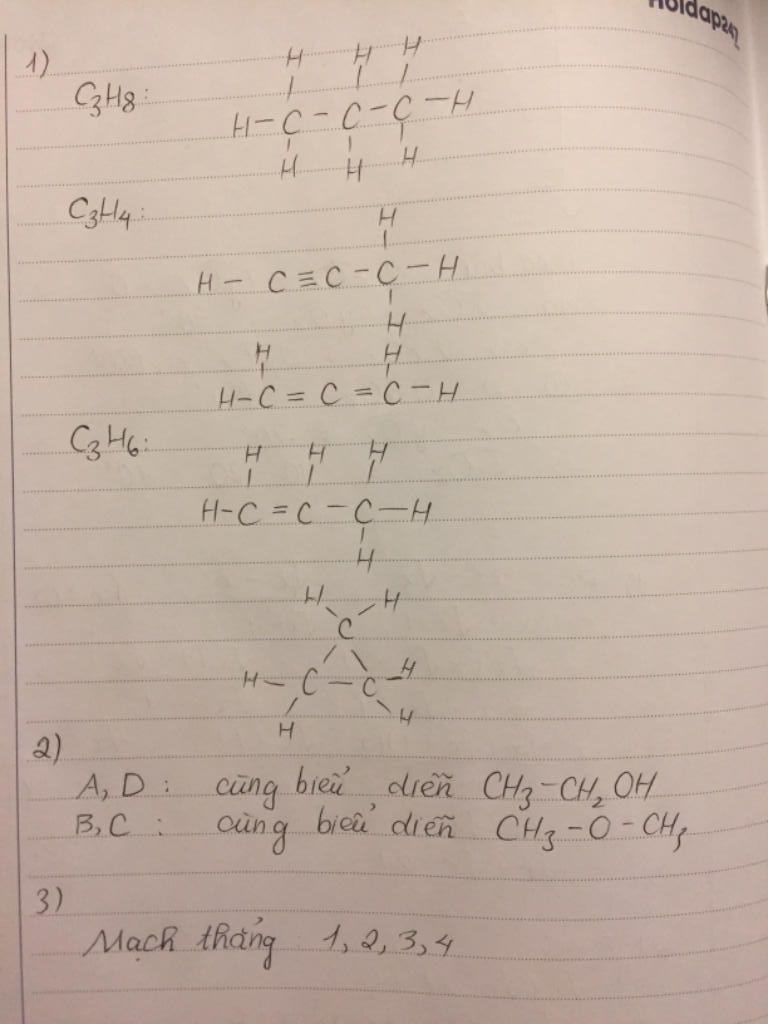 Hoidap247
1)
H H H
C3H8:
H-C-C-C-H
H H H
C3H4:
H
H-C≡C-C-H
H
H H
H-C=C=C-H
C3H6:
H H H
H-C=C-C-H
H
H H
C
H-C-C-H
H H
2)
A, D : cùng biểu diễn CH3-CH2OH
B, C : cùng biểu diễn CH3-O-CH3
3)
Mạch thẳng 1, 2, 3, 4